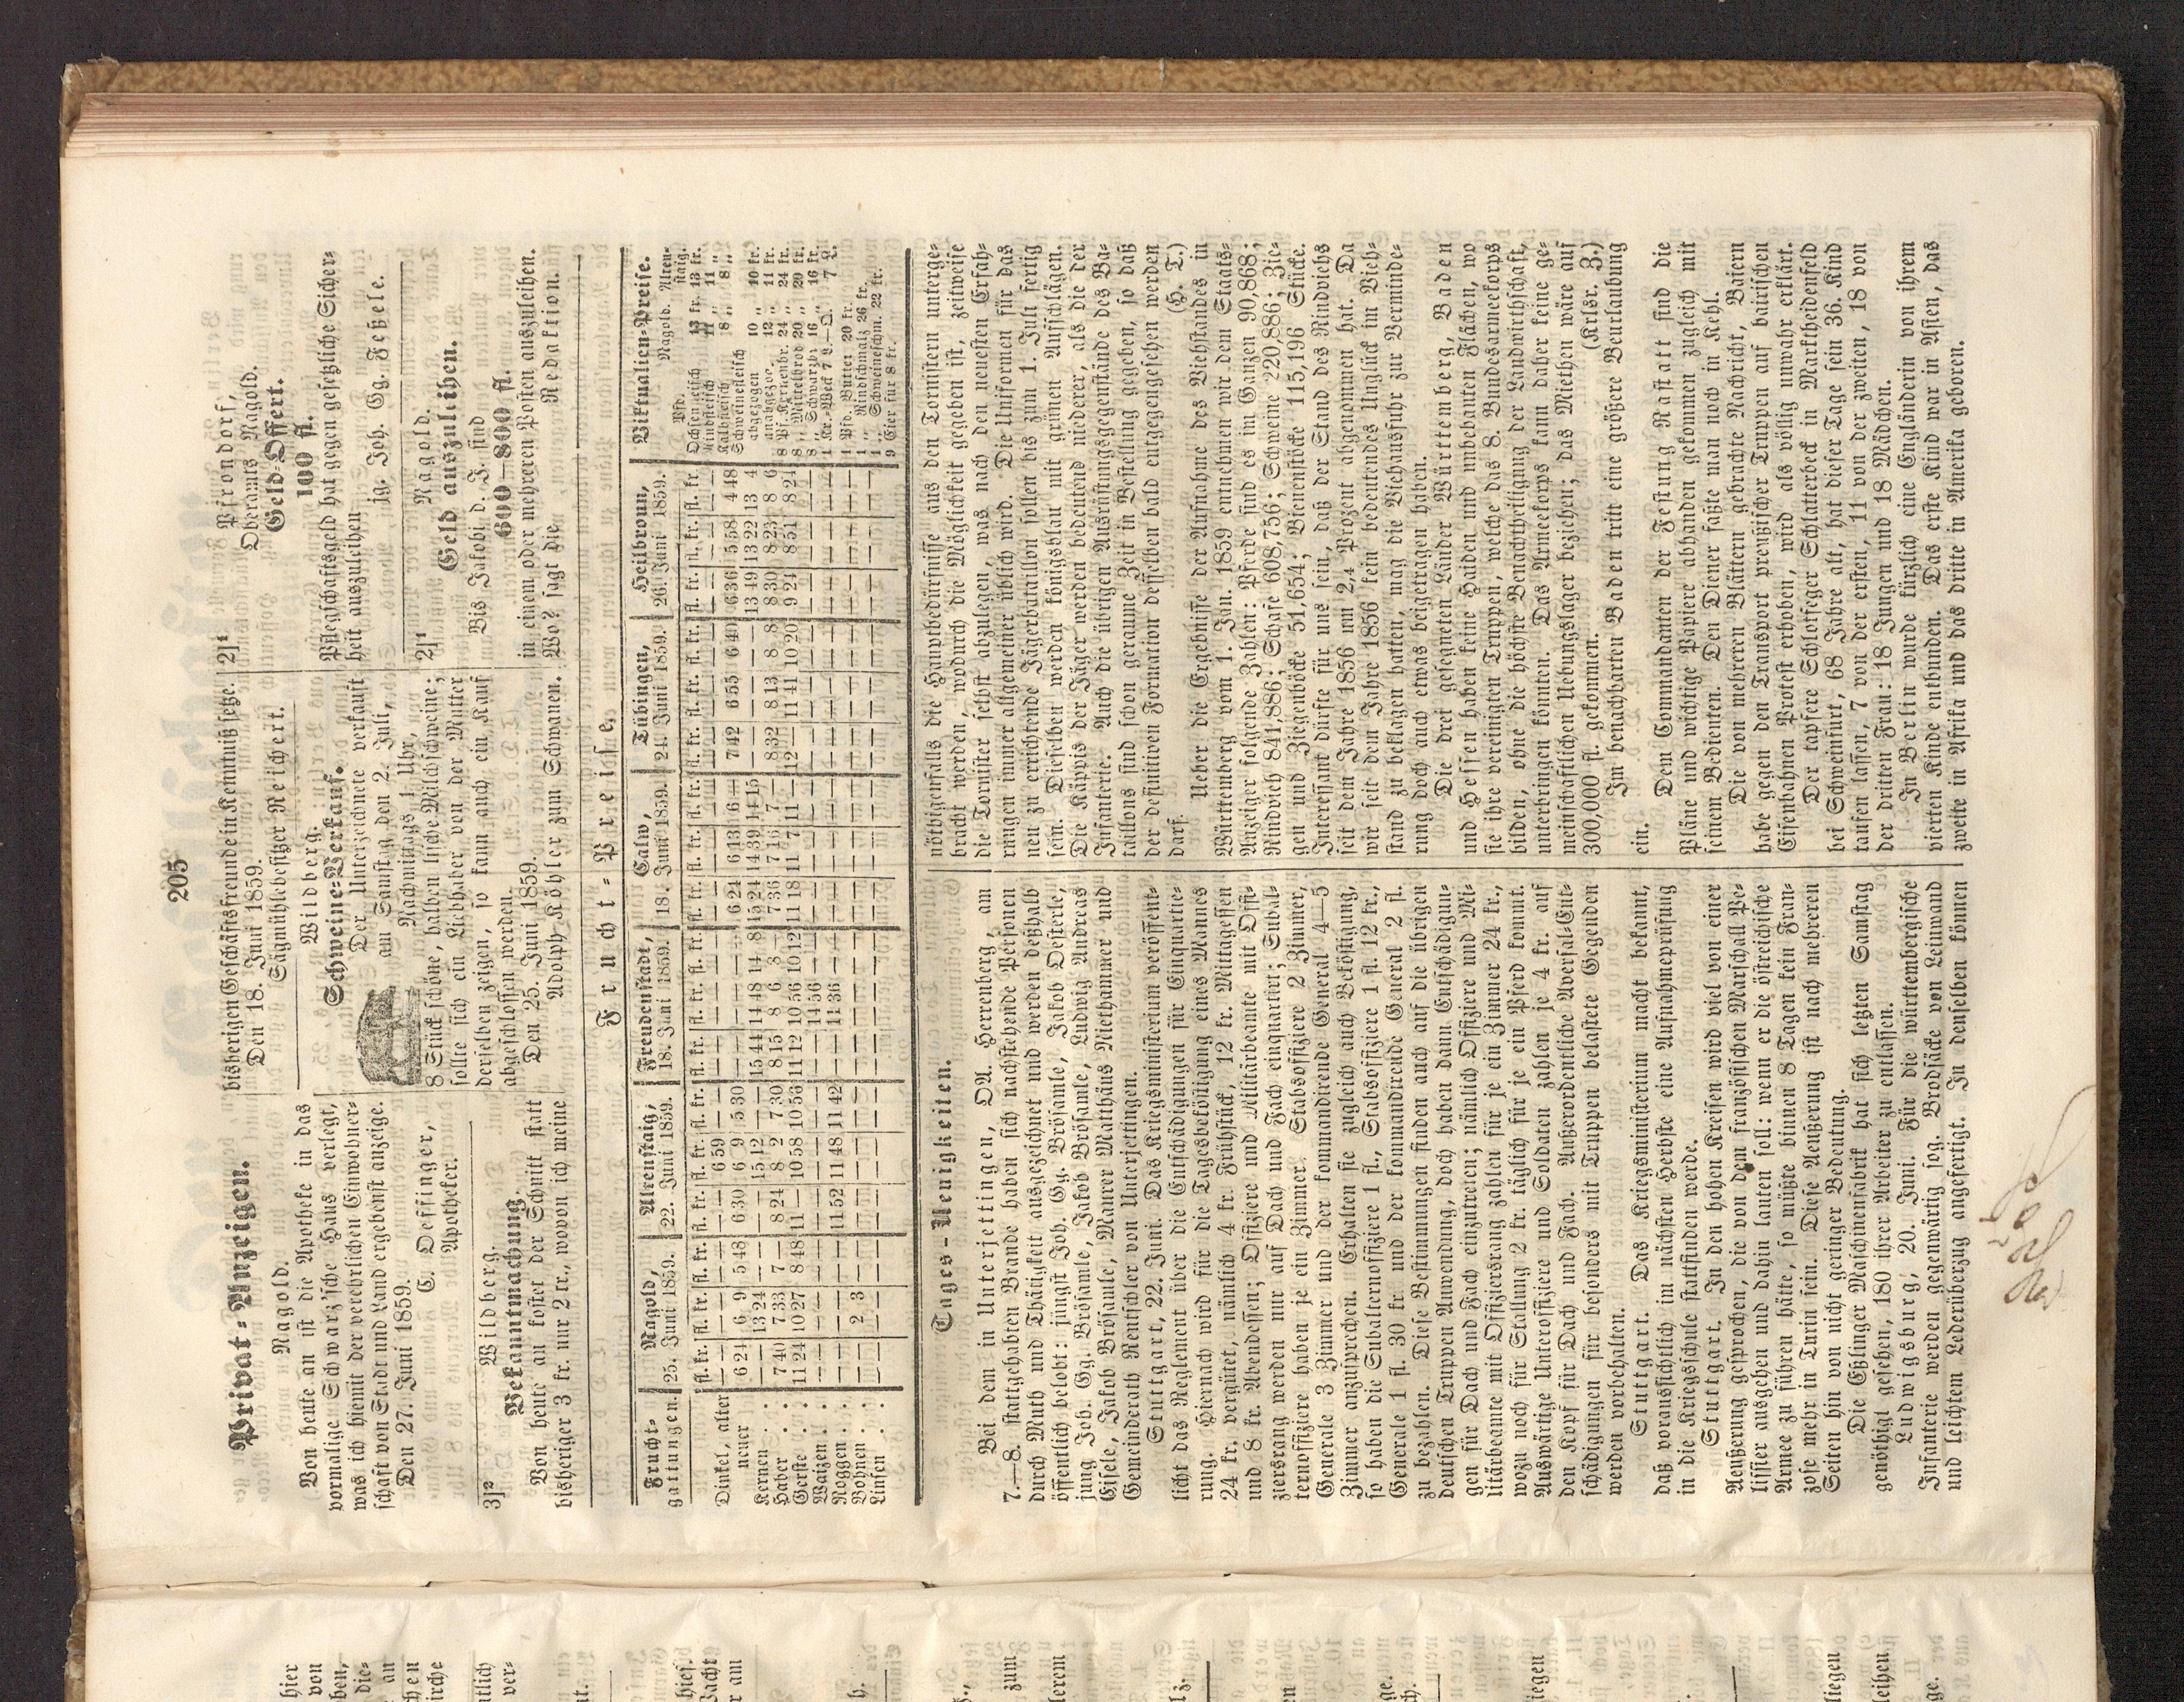 205
Privat-Anzeigen.
Nagold.
Von heute an ist die Apotheke in das
vormalige Schwarz'sche Haus verlegt,
was ich hiemit der verehrlichen Einwohner-
schaft von Stadt und Land ergebenst anzeige.
Den 27. Juni 1859.
C. Oeffinger,
Apotheker.
3]² Wildberg.
Bekanntmachung
Von heute an kostet der Schnitt statt
bisheriger 3 kr. nur 2 kr., wovon ich meine
bisherigen Geschäftsfreunde in Kenntniß setze.
Den 18. Juni 1859.
Sägmühlebesitzer Reichert.
Wildberg.
Schweine-Verkauf.
Der Unterzeichnete verkauft
am Samstag den 2. Juli,
Nachmittags 1 Uhr,
8 Stück schöne, halbenlische Milchschweine;
sollte sich ein Liebhaber von der Mutter
derselben zeigen, so kann auch ein Kauf
abgeschlossen werden.
Den 25. Juni 1859.
Adolph Köhler zum Schwanen.
2]¹ Pfrondorf,
Oberamts Nagold.
Geld-Offert.
100 fl.
Pflegschaftsgeld hat gegen gesetzliche Sicher-
heit auszuleihen
jg. Joh. Gg. Feßele.
2]¹ Nagold.
Geld auszuleihen.
Bis Jakobi d. J. sind
600–800 fl.
in einem oder mehreren Posten auszuleihen.
Wo? sagt die Redaktion.
Frucht-Preise.
Frucht-gattungen. Nagold, 25. Juni 1859. Altenstaig, 22. Juni 1859. Freudenstadt, 18. Juni 1859. Calw, 18. Juni 1859. Tübingen, 24. Juni 1859. Heilbronn, 26. Juni 1859.
fl. kr. fl. kr. fl. kr. fl. kr. fl. kr. fl. kr. fl. kr. fl. kr. fl. kr. fl. kr. fl. kr. fl. kr. fl. kr. fl. kr. fl. kr. fl. kr. fl. kr. fl. kr.
Dinkel, alter — — — — — — — — 6 59 — — — — — — — — — — — — — — — — — — — — — — — — — —
neuer 6 24 6 9 5 48 6 30 6 9 5 30 — — — — — — 6 24 6 13 6 — 7 42 6 55 6 40 6 36 5 58 4 48
Kernen . . — — 13 24 — — — — 15 12 — — 15 44 14 48 14 8 15 24 14 39 14 15 — — — — — — 13 49 13 22 13 4
Haber . . 7 40 7 33 7 — 8 24 8 2 7 30 8 15 8 6 8 — 7 36 7 16 7 — 8 32 8 13 8 8 8 30 8 23 8 6
Gerste . . 11 24 10 27 8 48 11 — 10 58 10 53 11 12 10 56 10 12 11 18 11 7 11 — 12 — 11 41 10 20 9 24 8 51 8 24
Waizen . . — — — — — — — — — — — — — — 14 56 — — — — — — — — — — — — — — — — — — — —
Roggen . . — — — — — — 11 52 11 48 11 42 — — 11 36 — — — — — — — — — — — — — — — — — — — —
Bohnen . . — — 2 3 — — — — — — — — — — — — — — — — — — — — — — — — — — — — — — — —
Linsen . . — — — — — — — — — — — — — — — — — — — — — — — — — — — — — — — — — — — —
Viktualien-Preise.
Nagold. Alten-staig.
Pfd.
Ochsenfleisch 13 kr. 13 kr.
Rindfleisch 11 „ 11 „
Kalbfleisch 8 „ 8 „
Schweinefleisch
abgezogen 10 „ 10 kr.
unabgezog. 12 „ 11 kr.
8 Pf. Kernenbr. 24 „ 24 kr.
8 „ Mittelbrod 20 „ 20 kr.
8 „ Schwarzbr. 16 „ 16 kr.
1 Kr.-Weck 7 L.—Q. 7 L.
1 Pfd. Butter 20 kr.
1 „ Rindschmalz 26 kr.
1 „ Schweineschm. 22 kr.
9 Eier für 8 kr.
Tages-Neuigkeiten.
Bei dem in Unterjettingen, OA. Herrenberg, am
7.—8. stattgehabten Brande haben sich nachstehende Personen
durch Muth und Thätigkeit ausgezeichnet und werden deßhalb
öffentlich belobt: jüngst Joh. Gg. Brösamle, Jakob Oesterle,
jung Joh. Gg. Brösamle, Jakob Brösamle, Ludwig Andreas
Eisele, Jakob Brösamle, Maurer Matthäus Niethammer und
Gemeinderath Rentschler von Unterjettingen.
Stuttgart, 22. Juni. Das Kriegsministerium veröffent-
licht das Reglement über die Entschädigungen für Einquartie-
rung. Hiernach wird für die Tagesbeköstigung eines Mannes
24 kr. vergütet, nämlich 4 kr. Frühstück, 12 kr. Mittagessen
und 8 kr. Abendessen; Offiziere und Militärbeamte mit Offi-
ziersrang werden nur auf Dach und Fach einquartirt; Subal-
ternoffiziere haben je ein Zimmer, Stabsoffiziere 2 Zimmer,
Generale 3 Zimmer und der kommandirende General 4—5
Zimmer anzusprechen. Erhalten sie zugleich auch Beköstigung,
so haben die Subalternoffiziere 1 fl., Stabsoffiziere 1 fl. 12 kr.,
Generale 1 fl. 30 kr. und der kommandirende General 2 fl.
zu bezahlen. Diese Bestimmungen finden auch auf die übrigen
deutschen Truppen Anwendung, doch haben dann Entschädigun-
gen für Dach und Fach einzutreten; nämlich Offiziere und Mi-
litärbeamte mit Offiziersrang zahlen für je ein Zimmer 24 kr.,
wozu noch für Stallung 2 kr. täglich für je ein Pferd kommt.
Auswärtige Unteroffiziere und Soldaten zahlen je 4 kr. auf
den Kopf für Dach und Fach. Außerordentliche Aversal-Ent-
schädigungen für besonders mit Truppen belastete Gegenden
werden vorbehalten.
Stuttgart. Das Kriegsministerium macht bekannt,
daß voraussichtlich im nächsten Herbste eine Aufnahmeprüfung
in die Kriegsschule stattfinden werde.
Stuttgart. In den hohen Kreisen wird viel von einer
Aeußerung gesprochen, die von dem französischen Marschall Pe-
lissier ausgehen und dahin lauten soll: wenn er die östreichische
Armee zu führen hätte, so müßte binnen 8 Tagen kein Fran-
zose mehr in Turin sein. Diese Aeußerung ist nach mehreren
Seiten hin von nicht geringer Bedeutung.
Die Eßlinger Maschinenfabrik hat sich letzten Samstag
genöthigt gesehen, 180 ihrer Arbeiter zu entlassen.
Ludwigsburg, 20. Juni. Für die württembergische
Infanterie werden gegenwärtig sog. Brodsäcke von Leinwand
und leichtem Lederüberzug angefertigt. In denselben können
nöthigenfalls die Hauptbedürfnisse aus den Tornistern unterge-
bracht werden, wodurch die Möglichkeit gegeben ist, zeitweise
die Tornister selbst abzulegen, was nach den neuesten Erfah-
rungen immer allgemeiner üblich wird. Die Uniformen für das
neu zu errichtende Jägerbataillon sollen bis zum 1. Juli fertig
sein. Dieselben werden königsblau mit grünen Aufschlägen.
Die Käppis der Jäger werden bedeutend niederer, als die der
Infanterie. Auch die übrigen Ausrüstungsgegenstände des Ba-
taillons sind schon geraume Zeit in Bestellung gegeben, so daß
der definitiven Formation desselben bald entgegengesehen werden
darf. (H. T.)
Ueber die Ergebnisse der Aufnahme des Viehstandes in
Württemberg vom 1. Jan. 1859 entnehmen wir dem Staats-
Anzeiger folgende Zahlen: Pferde sind es im Ganzen 90,868;
Rindvieh 841,886; Schafe 608,756; Schweine 220,886; Zie-
gen und Ziegenböcke 51,654; Bienenstöcke 115,196 Stücke.
Interessant dürfte für uns sein, daß der Stand des Rindviehs
seit dem Jahre 1856 um 2,4 Prozent abgenommen hat. Da
wir seit dem Jahre 1856 kein bedeutendes Unglück im Vieh-
stand zu beklagen hatten, mag die Viehausfuhr zur Verminde-
rung doch auch etwas beigetragen haben.
Die drei gesegneten Länder Württemberg, Baden
und Hessen haben keine Haiden und unbebauten Flächen, wo
sie ihre vereinigten Truppen, welche das 8. Bundesarmeekorps
bilden, ohne die höchste Benachtheiligung der Landwirthschaft,
unterbringen könnten. Das Armeekorps kann daher keine ge-
meinschaftlichen Uebungslager beziehen; das Miethen wäre auf
300,000 fl. gekommen. (Krlsr. Z.)
Im benachbarten Baden tritt eine größere Beurlaubung
ein.
Dem Commandanten der Festung Rastatt sind die
Pläne und wichtige Papiere abhanden gekommen zugleich mit
seinem Bedienten. Den Diener faßte man noch in Kehl.
Die von mehreren Blättern gebrachte Nachricht, Baiern
habe gegen den Transport preußischer Truppen auf bairischen
Eisenbahnen Protest erhoben, wird als völlig unwahr erklärt.
Der tapfere Schlotfeger Schlatterbeck in Marktheidenfeld
bei Schweinfurt, 68 Jahre alt, hat dieser Tage sein 36. Kind
taufen lassen, 7 von der ersten, 11 von der zweiten, 18 von
der dritten Frau: 18 Jungen und 18 Mädchen.
In Berlin wurde kürzlich eine Engländerin von ihrem
vierten Kinde entbunden. Das erste Kind war in Asien, das
zweite in Afrika und das dritte in Amerika geboren.